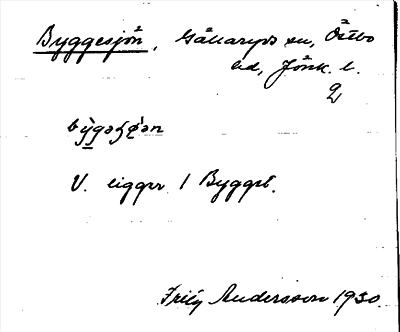 Byggesjön, Gällaryds sn, Östbo
hd, Jönk. l.
2
V. ligger i Bygget.
Frith Andersson 1930.